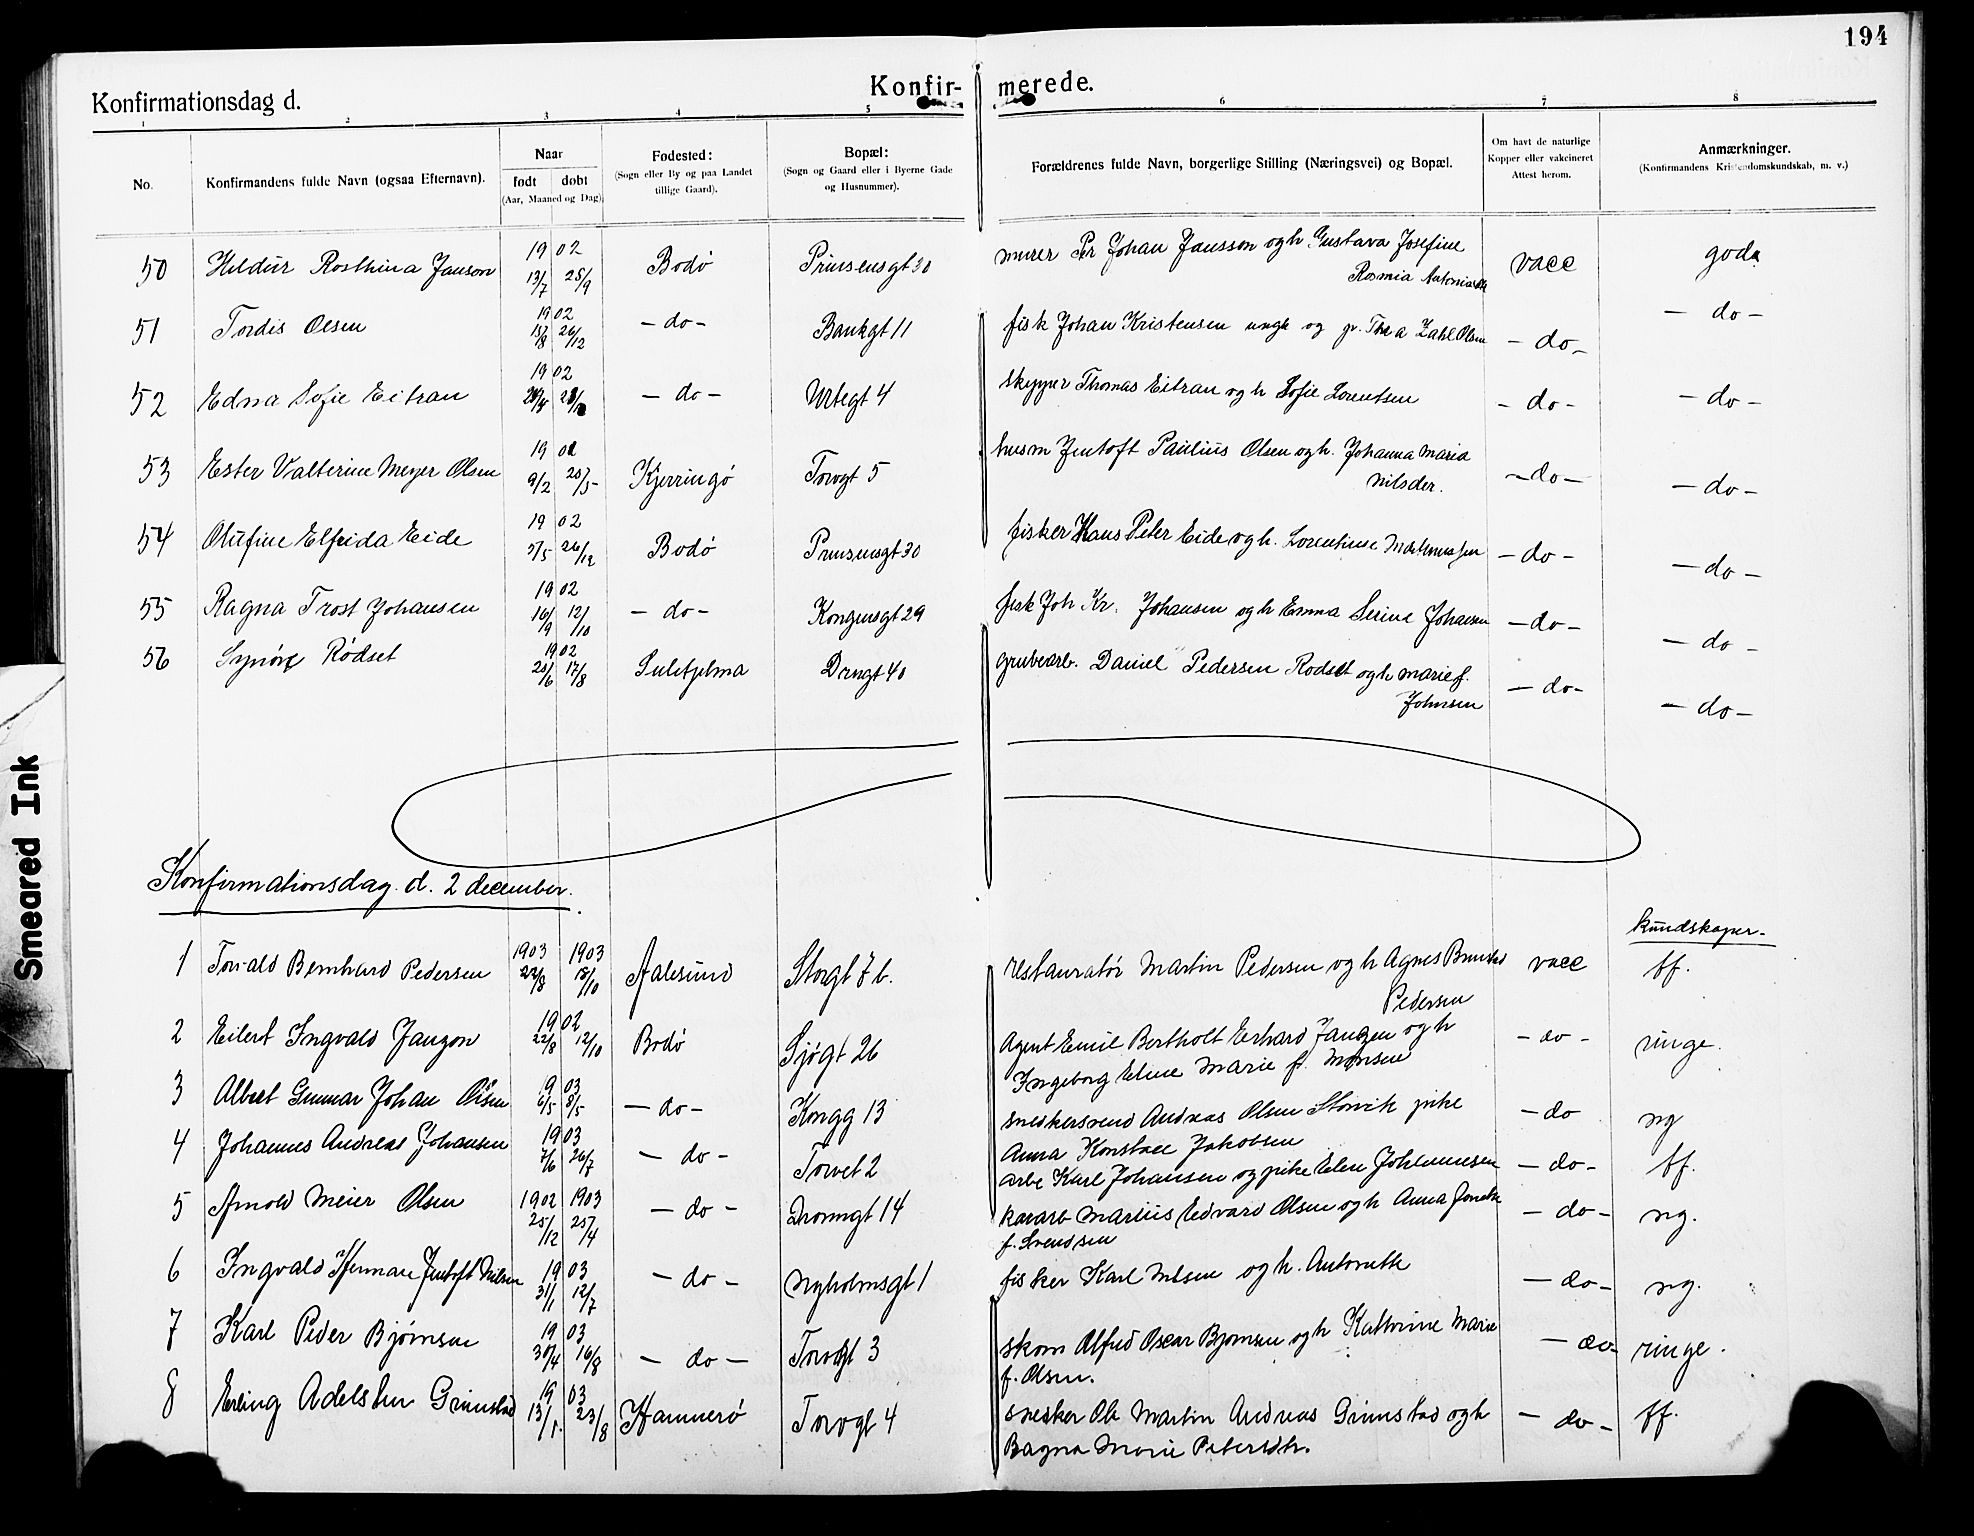 194
Konfirmationsdag d.
Konfir- merede.
1 2 3 4 5 6 7 8
No.
Konfirmandens fulde Navn (ogsaa Efternavn).
Naar
født døbt
(Aar, Maaned og Dag).
Fødested:
(Sogn eller By og paa Landet
tillige Gaard).
Bopæl:
(Sogn og Gaard eller i Byerne Gade
og Husnummer).
Forældrenes fulde Navn, borgerlige Stilling (Næringsvei) og Bopæl.
Om havt de naturlige
Kopper eller vakcineret
Attest herom.
Anmærkninger.
(Konfirmandens Kristendomskundskab, m. v.)
1902
50 Hildur Janson 13/7 28/9 Bodø Prinsensgt 30 murer Per Johan Jansson og h Gustava Josefine vacc goda
1902
51 Tordis Olsen 26/12 - do - Bankgt 11 fisk Johan Kristensen ungk og Zahl Olsen - do - - do -
1902
52 Edna Sofie Eitran - do - Urtegt 4 skypper Thomas Eitran og h Sofie Lorentsen - do - - do -
1902
53 Ester Valterine Meyer Olsen 9/2 20/5 Kjerringø Torvgt 5 husm Jentoft Paulius Olsen og h. Johanna Maria - do - - do -
Nilsder.
1902
54 Olufine Elfrida Eide 5/5 26/12 Bodø Prinsensgt 30 fisker Hans Peter Eide og h. Lorentine - do - - do -
1902
55 Ragna Trost Johansen 16/9 12/10 - do - Kongensgt 29 fisk Joh Kr. Johansen og h Emma Serine Johansen - do - - do -
1902
56 Synøve Rødset 17/8 Sulitjelma Drngt 40 grubearb. Daniel Pedersen Rodset og h Marie f. - do - - do -
Johnsen
Konfirmationsdag d. 2 december.
kundskaper-
1903 1903
1 Torvald Bernhard Pedersen 22/8 18/10 Aalesund Storgt 7 b. restauratør Martin Pedersen og h Agnes vacc tf.
Pedersen
1902
2 Eilert Ingvald Janzon 22/8 12/10 Bodø Sjøgt 26 Agent Emil Bertholt Erhard Janzen og h - do - ringe.
Ingeborg Eline Marie f. Monsen
9 03
3 Albert Gunnar Johan Olsen 6/5 8/5 - do - Kongg 13 snedkersvend Andreas Olsen Storvik pike - do ng
Anna Jakobsen
1903
4 Johannes Andreas Johansen 7/6 26/7 - do - Torvet 2 arbe Karl Johansen og pike - do - tf.
1902 1903
5 Arnold Meier Olsen 25/12 25/4 - do - Dronngt 14 Marius Edvard Olsen og h Anna - do - ng.
f. Svendsen
1903
6 Ingvald Herman Jentoft Nilsen 31/1 12/7 - do - Nyholmsgt 1 fisker Karl Nilsen og h. Antonette - do - ng.
1903
7 Karl Peder Bjørnsen 30/4 16/8 - do - Torvgt 3 skom Alfred Oscar Bjørnsen og h Kathrine Marie - do - ringe.
f. Olsen.
1903
8 Erling Adelsten Grimstad 13/1. 23/8 Hammerø Torvgt 4 snedker Ole Martin Andreas Grimstad og h - do - tf.
Ragna Marie
Smeared Ink